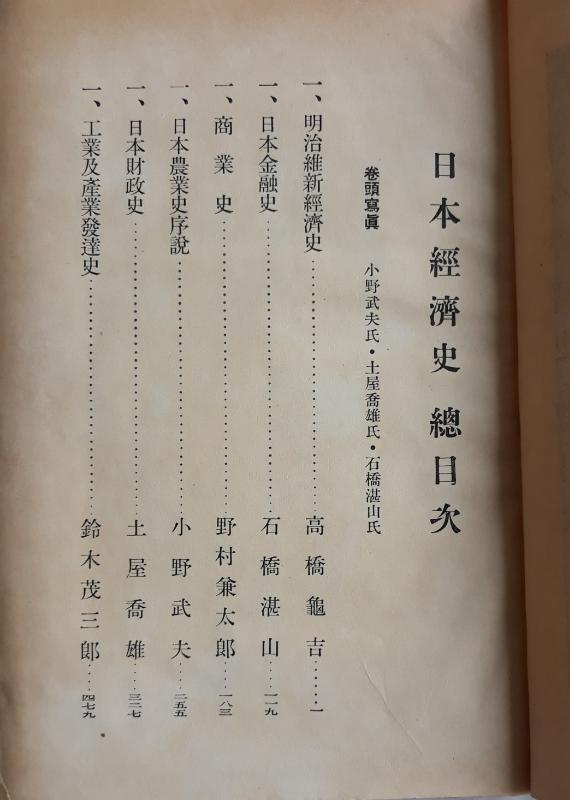 日本經濟史 總目次
卷頭寫眞 小野武夫氏・土屋喬雄氏・石橋湛山氏
一、明治維新經濟史……高橋龜吉……一
一、日本金融史……石橋湛山……一一九
一、商業史……野村兼太郎……一八三
一、日本農業史序說……小野武夫……二五五
一、日本財政史……土屋喬雄……三三七
一、工業及產業發達史……鈴木茂三郎……四七九